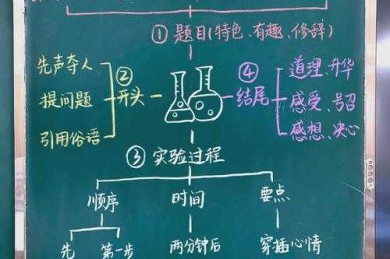 ①题目(特色、有趣、修辞)
先声夺人
提问题
引用俗语
②开头
④结尾
道理、升华
感受、号召
感想、决心
③实验过程
顺序 时间 要点
先 第一步 两分钟后 穿插心情